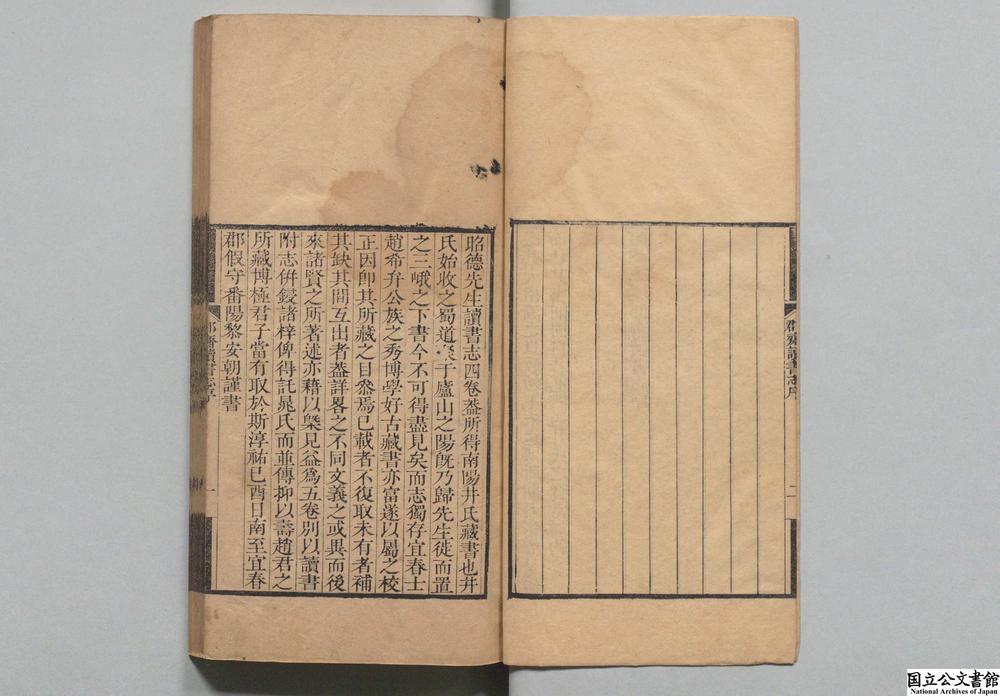 郡齋讀書志序
二
昭德先生讀書志四卷葢所得南陽井氏藏書也井
氏始收之蜀道 于廬山之陽旣乃歸先生徙而置
之三峨之下書今不可得盡見矣而志獨存宜春士
趙希弁公族之秀博學好古藏書亦富遂以屬之校
正因卽其所藏之目叅焉已載者不復取未有者補
其缺其間互出者葢詳畧之不同文義之或異而後
來諸賢之所著述亦藉以槩見益爲五卷別以讀書
附志倂鋟諸梓俾得託晁氏而並傳抑以壽趙君之
所藏博極君子當有取於斯淳祐己酉日南至宜春
郡假守番陽黎安朝謹書
郡齋讀書志序
一
国立公文書館
National Archives of Japan